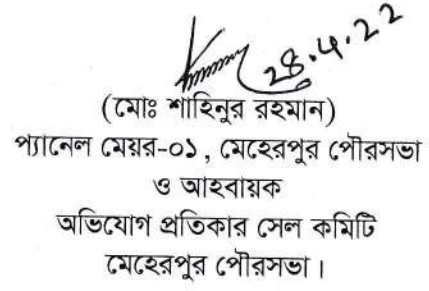 28.4.22
(মোঃ শাহিনুর রহমান)
প্যানেল মেয়র-০১, মেহেরপুর পৌরসভা
ও আহবায়ক
অভিযোগ প্রতিকার সেল কমিটি
মেহেরপুর পৌরসভা।